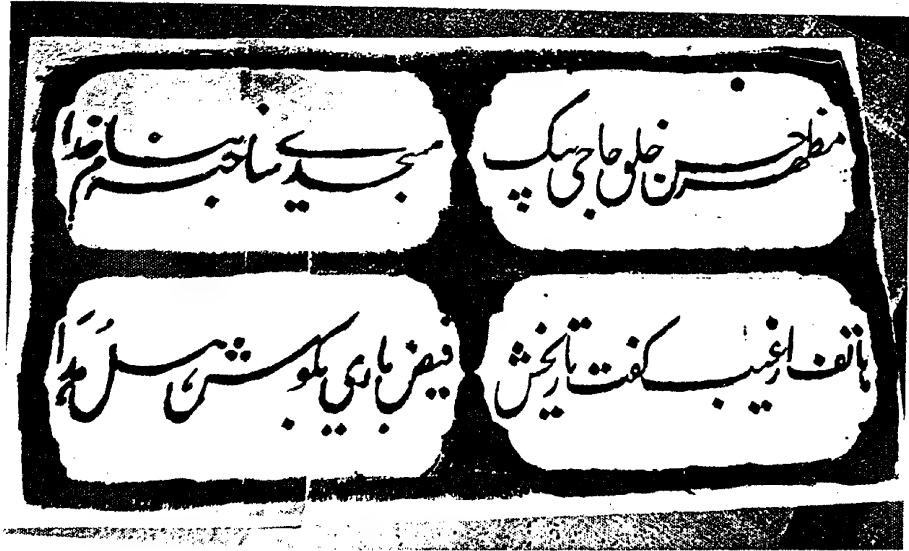 مظهر حسن خلق حاجی بیک
مسجدے بنام خدا
هاتف از غیب کفت تاریخش
فیض باری بکو هدا